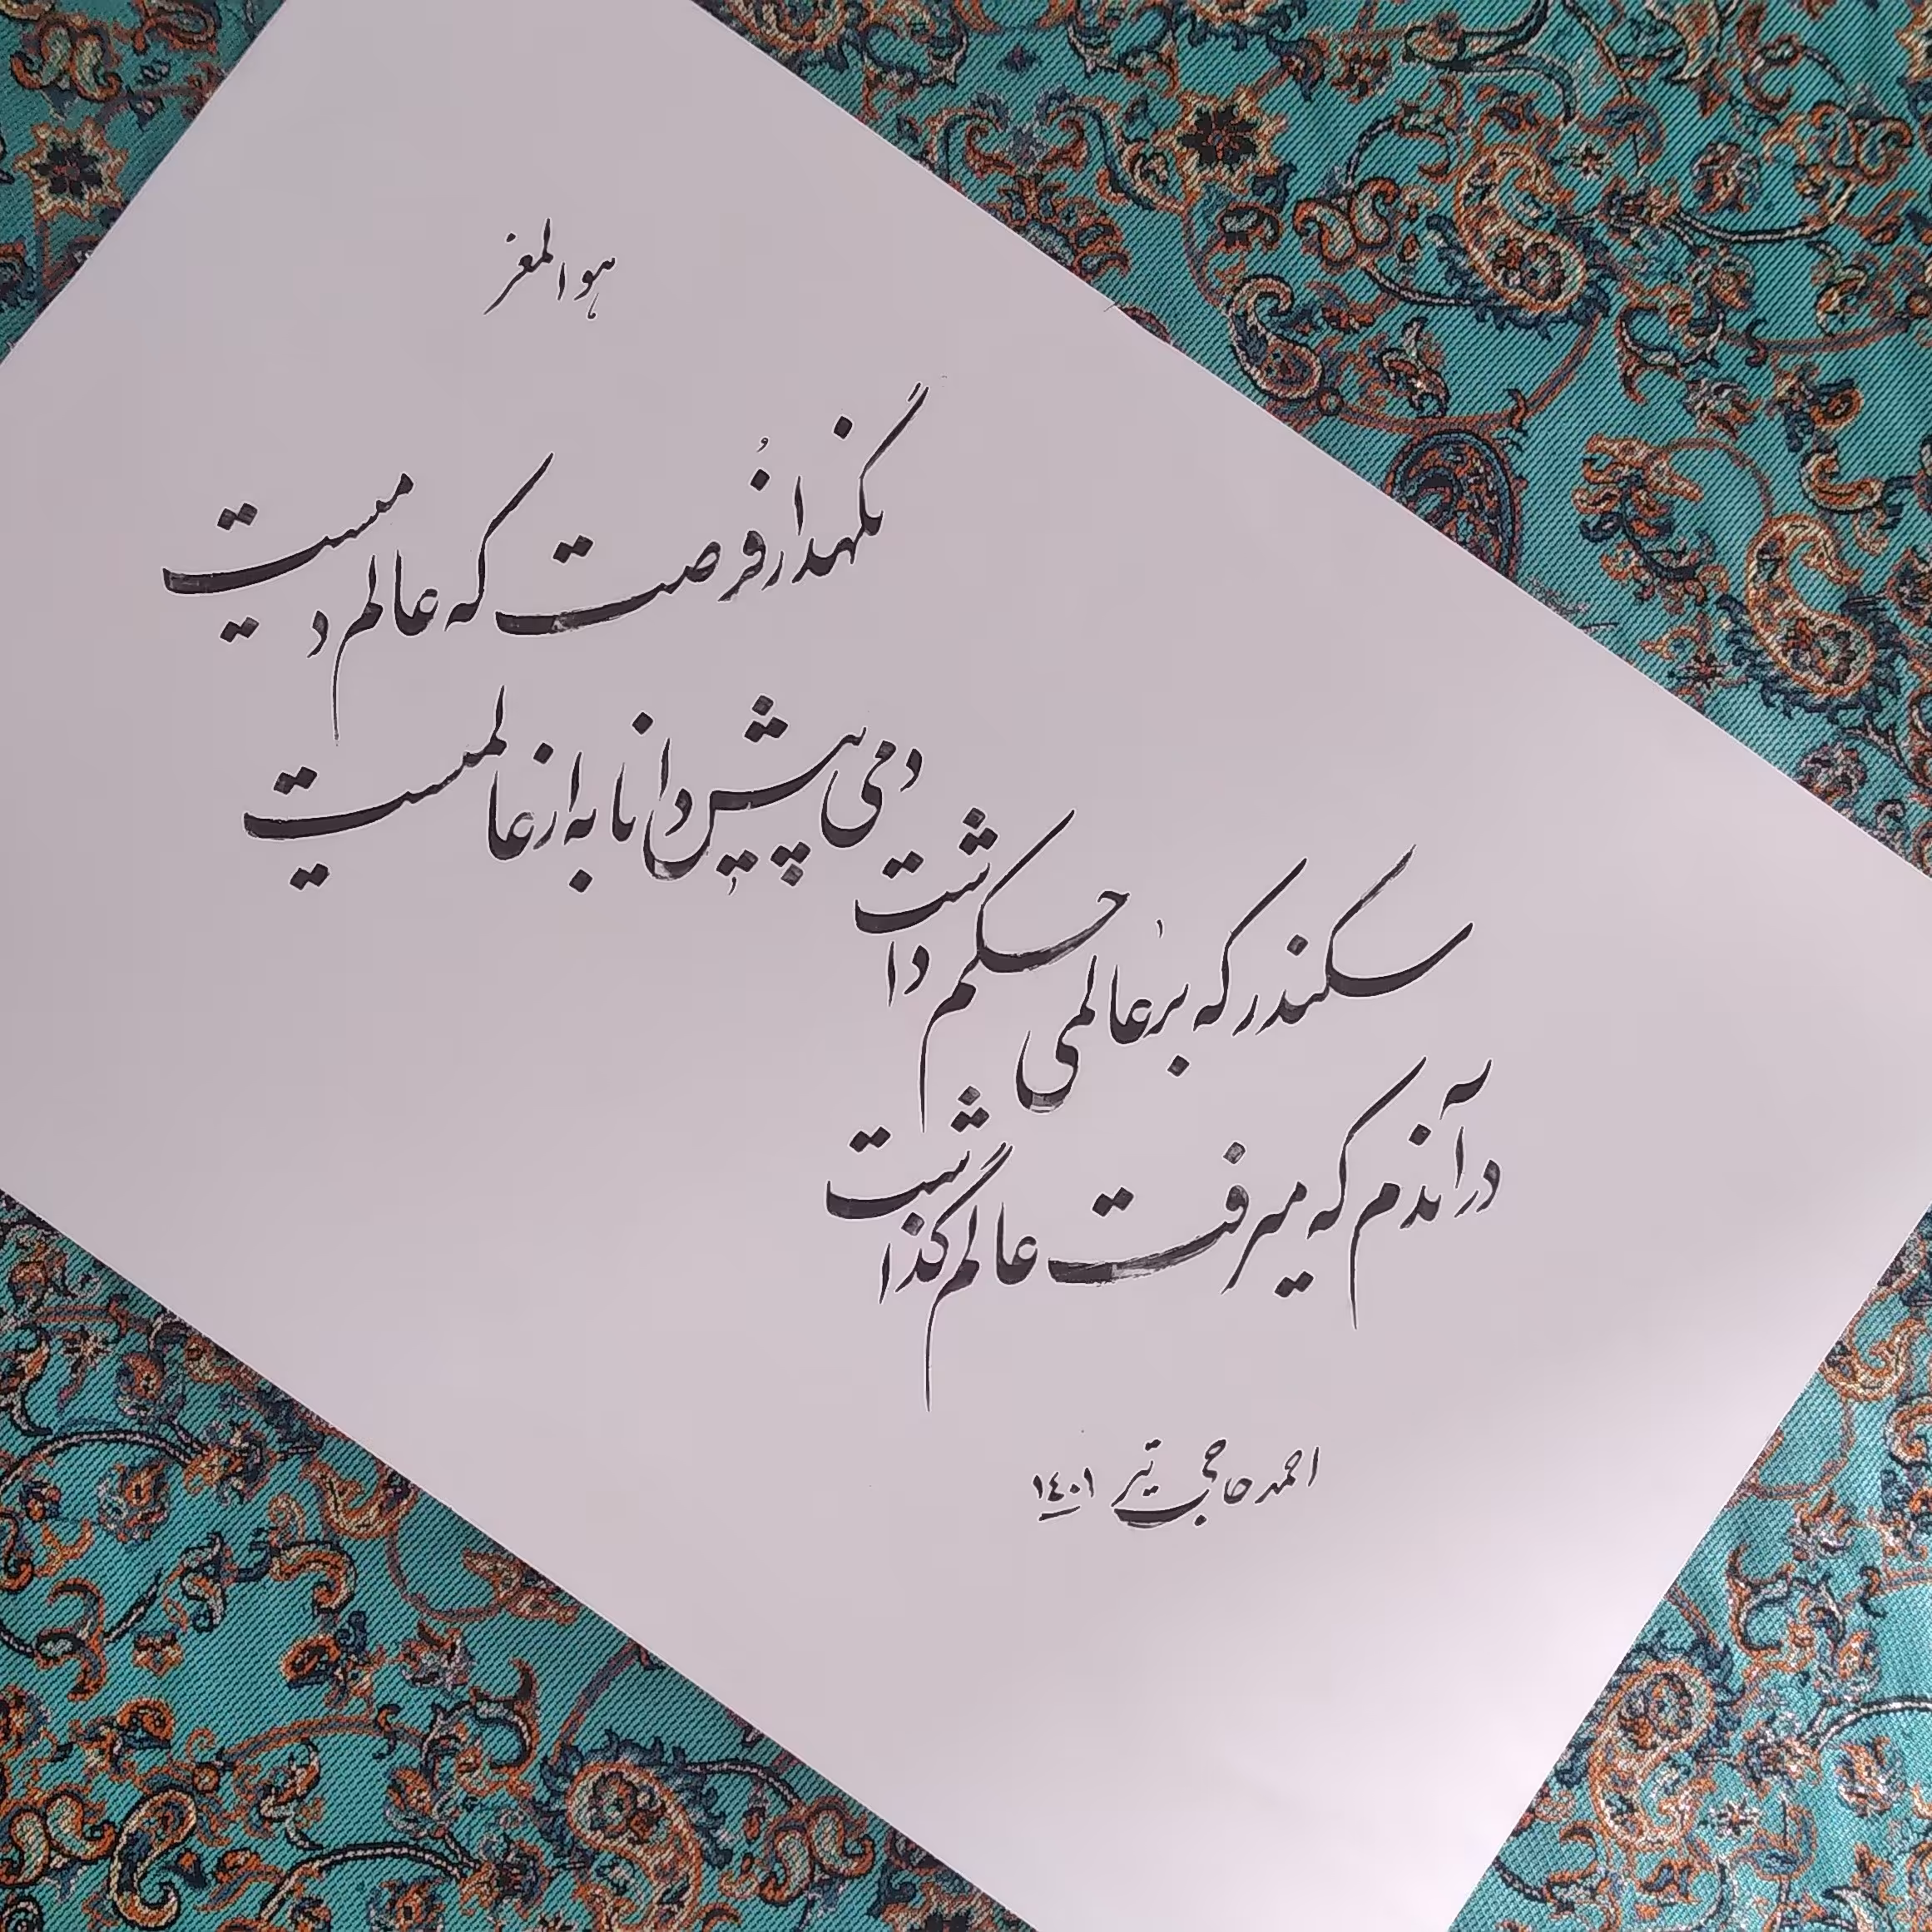 هو المعز
نگهدار فُرصت که عالم دمیست
دمی پیش دانا به از عالمیست
سکندر که بر عالمی حکم داشت
در آندم که میرفت عالم گذاشت
احمد حاجی تیر ۱٤۰۱